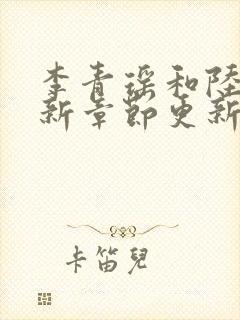 李青瑶和陸
新章節更新
卡笛兒